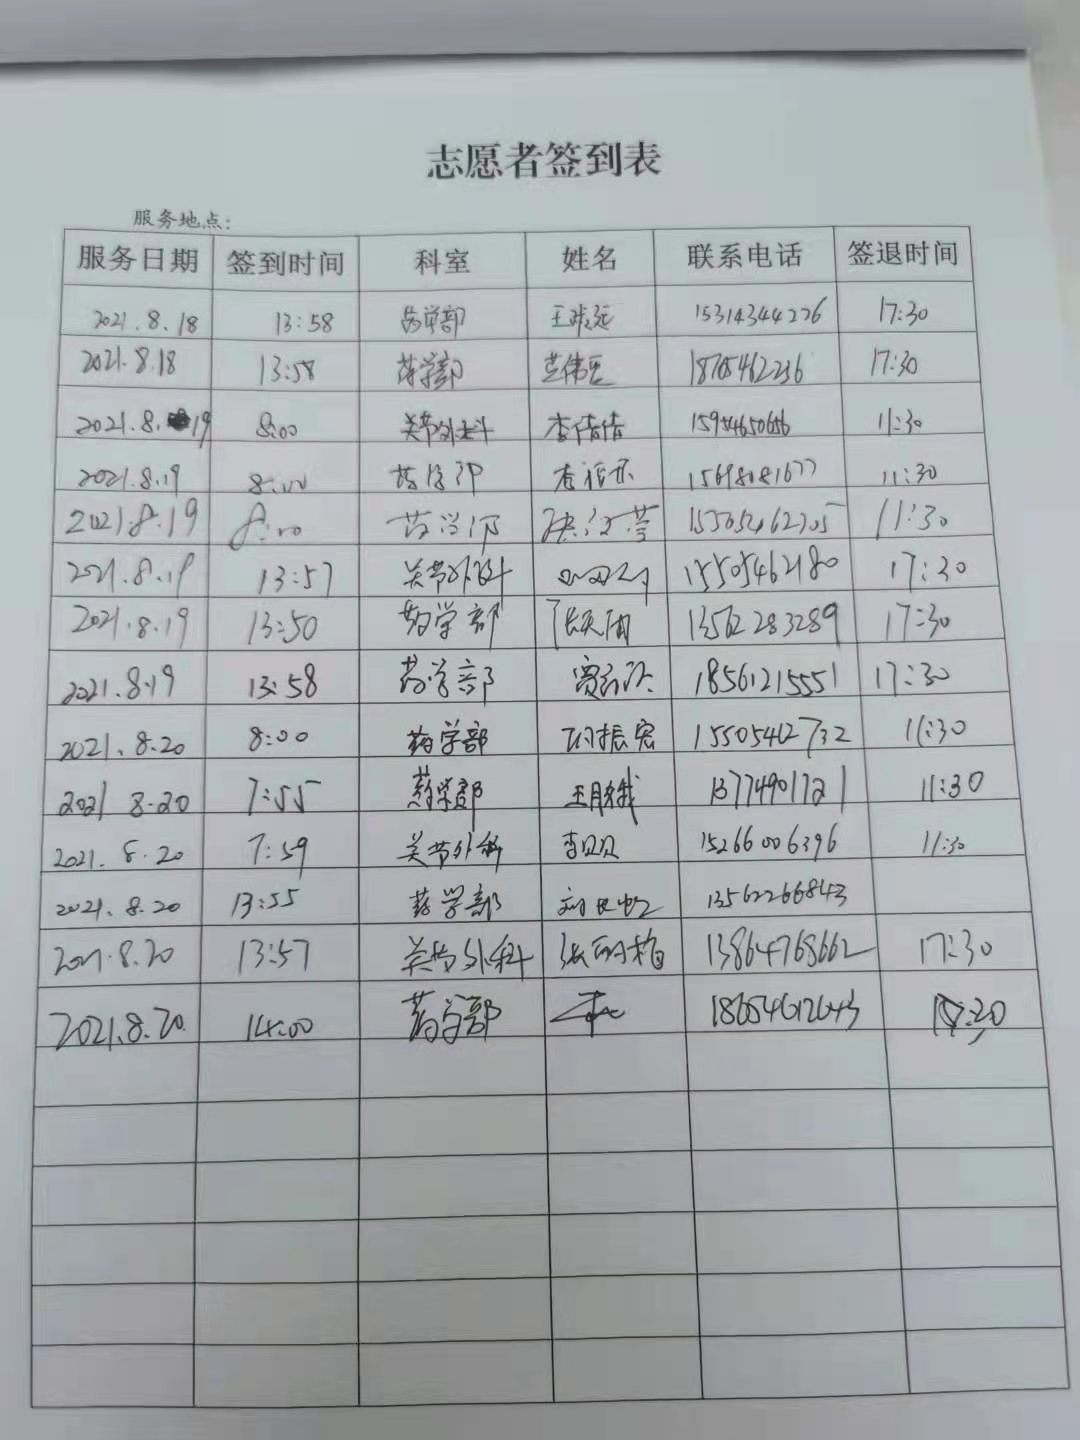 志愿者签到表
服务地点:
服务日期 签到时间 科室 姓名 联系电话 签退时间
2021.8.18 13:58 药学部 15314344226 17:30
2021.8.18 13:58 药学部 18765462236 17:30
2021.8.19 8:00 关节外科 李倩倩 11:30
2021.8.19 8:00 药学部 15698081677 11:30
2021.8.19 8:00 药学部 11:30
2021.8.19 13:57 关节外科 15505462180 17:30
2021.8.19 13:50 药学部 13562283289 17:30
2021.8.19 13:58 药学部 18561215551 17:30
2021.8.20 8:00 药学部 15505462732 11:30
2021 8.20 7:55 药学部 13774901721 11:30
2021.8.20 7:59 关节外科 李贝贝 15266006396 11:30
2021.8.20 13:55 药学部 13562266843
2021.8.20 13:57 关节外科 13864768662 17:30
2021.8.20. 14:00 药学部 18654612643